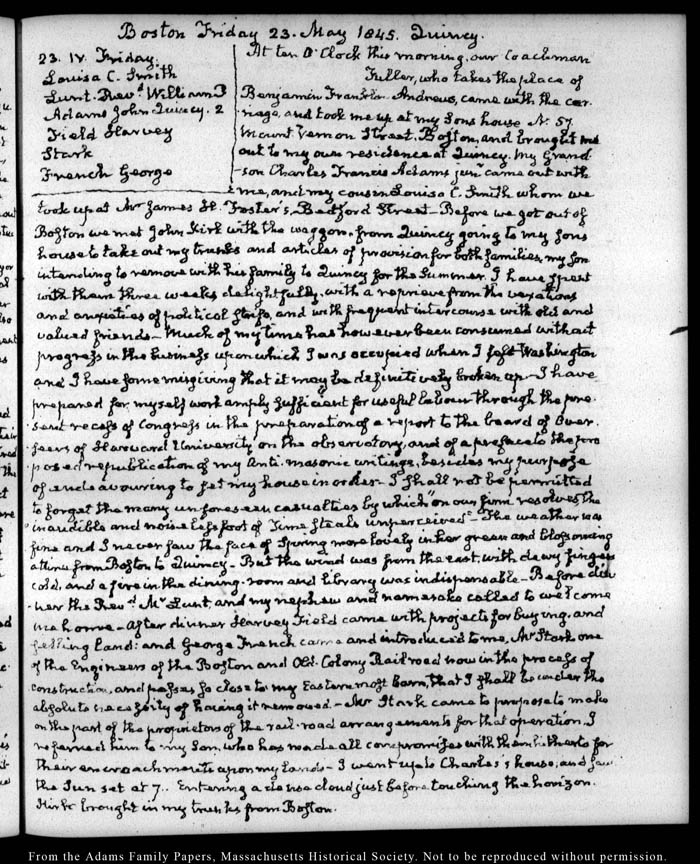 Boston Friday 23. May 1845. Quincy.
23. IV. Friday.
Louisa C. Smith
Lunt. Revd William P
Adams John Quincy. 2
Field Harvey
Stark
French George
At ten O'Clock this morning, our Coachman
Fuller, who takes the place of
Benjamin Franklin Andrews, came with the car-
riage, and took me up at my Sons house N. 57
Mount Vernon Street, Boston, and brought me
out to my own residence at Quincy. My Grand-
son Charles Francis Adams junr came out with
me, and my cousin Louisa C. Smith whom we
took up at Mr James H. Foster's, Bedford Street. Before we got out of
Boston we met John Kirk with the waggon, from Quincy going to my Sons
house to take out my trunks and articles of provision for both families, my Son
intending to remove with his family to Quincy for the Summer. I have spent
with them three weeks delightfully, with a reprieve from the vexations
and anxieties of political strife, and with frequent intercourse with old and
valued friends. Much of my time has however been consumed without
progress in the business upon which I was occupied when I left Washington
and I have some misgiving that it may be definitively broken up. I have
prepared for myself work amply sufficient for useful labour through the pre-
sent recess of Congress in the preparation of a report to the board of Over-
seers of Harvard University on the observatory, and of a preface to the pro
posed republication of my Anti-masonic writings, besides my purpose
of endeavouring to set my house in order. I shall not be permitted
to forget the many unforeseen casualties by which "on our firm resolves, the
inaudible and noiseless foot of Time steals unperceived" - The weather was
fine and I never saw the face of Spring more lovely in her green and blossoming
attire from Boston to Quincy - But the wind was from the east, with dewy fingers
cold, and a fire in the dining-room and library was indispensable - Before din
ner the Revd Mr Lunt, and my nephew and namesake called to welcome
me home - after dinner Harvey Field came with projects for buying, and
selling land: and George French came and introduced to me, Mr Stark one
of the Engineers of the Boston and Old-Colony Railroad now in the process of
construction, and passes so close to my Easternmost barn, that I shall be under the
absolute necessity of having it removed - Mr Stark came to propose to make
on the part of the proprietors of the rail-road arrangements for that operation. I
referred him to my Son, who has made all compromises with them hitherto for
their encroachments upon my lands - I went up to Charles's house, and saw
the Sun set at 7.. Entering a dense cloud just before touching the horizon.
Kirk brought in my trunks from Boston.
From the Adams Family Papers, Massachusetts Historical Society. Not to be reproduced without permission.